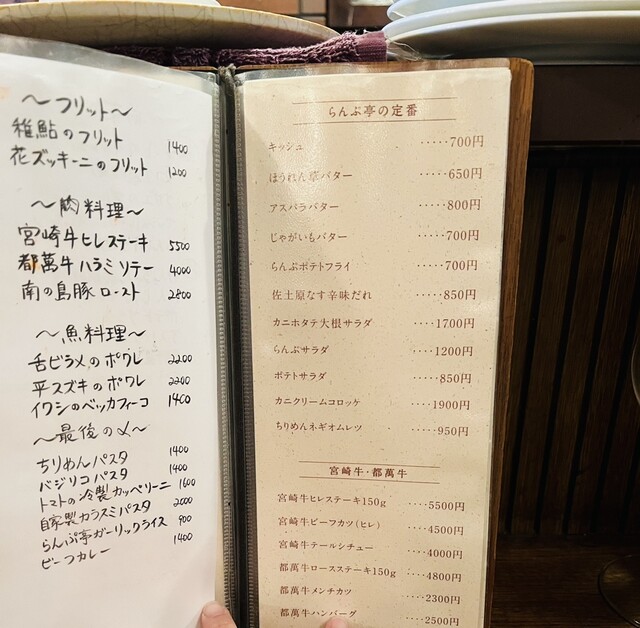 〜フリット〜
稚鮎のフリット 1400
花ズッキーニのフリット 1200
〜肉料理〜
宮崎牛ヒレステーキ 5500
都萬牛ハラミソテー 4000
南の島豚ロースト 2800
〜魚料理〜
舌ビラメのポワレ 2200
平スズキのポワレ 2200
イワシのベッカフィーコ 1400
〜最後の〆〜
ちりめんパスタ 1400
バジリコパスタ 1400
トマトの冷製カッペリーニ 1600
自家製カラスミパスタ 2000
らんぷ亭ガーリックライス 900
ビーフカレー 1400
らんぷ亭の定番
キッシュ ·····700円
ほうれん草バター ·····650円
アスパラバター ·····800円
じゃがいもバター ·····700円
らんぷポテトフライ ·····700円
佐土原なす辛味だれ ·····850円
カニホタテ大根サラダ ····1700円
らんぷサラダ ····1200円
ポテトサラダ ·····850円
カニクリームコロッケ ····1900円
ちりめんネギオムレツ ·····950円
宮崎牛·都萬牛
宮崎牛ヒレステーキ150g ····5500円
宮崎牛ビーフカツ(ヒレ) ····4500円
宮崎牛テールシチュー ····4000円
都萬牛ロースステーキ150g ····4800円
都萬牛メンチカツ ····2300円
都萬牛ハンバーグ ····2500円